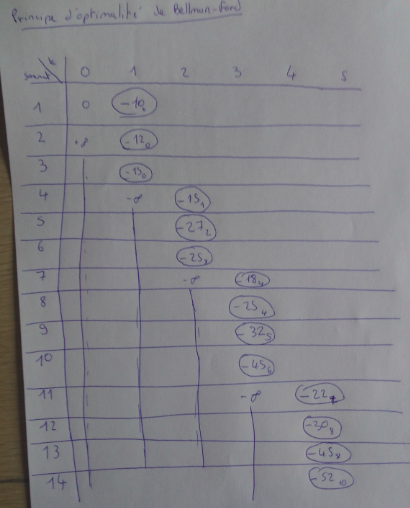 Principe d'optimalité de Bellman-Ford
k
sommet 0 1 2 3 4 5
1 0 -10
2 -∞ -12₀
3 -15₀
4 -∞ -15₁
5 -27₂
6 -25₃
7 -∞ -18₄
8 -25₄
9 -32₅
10 -45₆
11 -∞ -22₇
12 -30₈
13 -45₈
14 -52₁₀